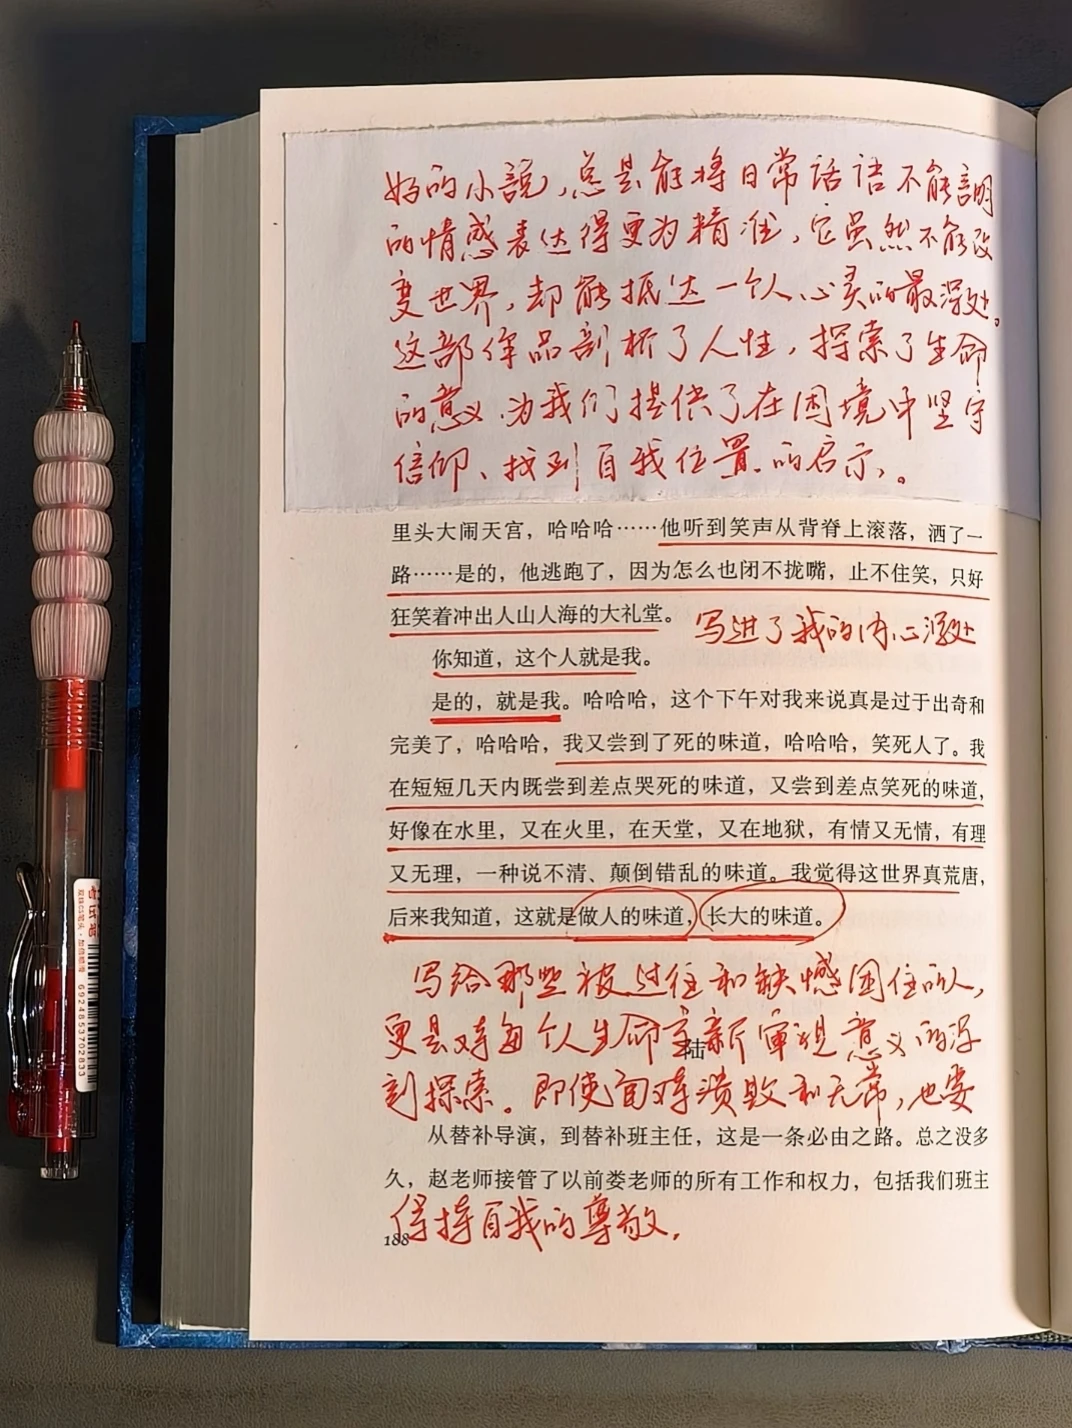 好的小說,总是能将日常话语不能説明
的情感表达得更为精准,它虽然不能改
变世界,却能抵达一个人心灵的最深处。
这部作品剖析了人性,探索了生命
的意义,为我们提供了在困境中坚守
信仰、找到自我位置的启示。
里头大闹天宫，哈哈哈……他听到笑声从背脊上滚落，洒了一
路……是的，他逃跑了，因为怎么也闭不拢嘴，止不住笑，只好
狂笑着冲出人山人海的大礼堂。
写进了我的内心深处
你知道，这个人就是我。
是的，就是我。哈哈哈，这个下午对我来说真是过于出奇和
完美了，哈哈哈，我又尝到了死的味道，哈哈哈，笑死人了。我
在短短几天内既尝到差点哭死的味道，又尝到差点笑死的味道，
好像在水里，又在火里，在天堂，又在地狱，有情又无情，有理
又无理，一种说不清、颠倒错乱的味道。我觉得这世界真荒唐，
后来我知道，这就是做人的味道，长大的味道。
写给那些被过往和缺憾困住的人,
更是对每个人生命重新审视意义的深
陆
刻探索。即使面对溃败和无常,也要
从替补导演，到替补班主任，这是一条必由之路。总之没多
久，赵老师接管了以前娄老师的所有工作和权力，包括我们班主
保持自我的尊严。
188
考试笔
双珠CS弯头·加倍顺滑
6924853702833